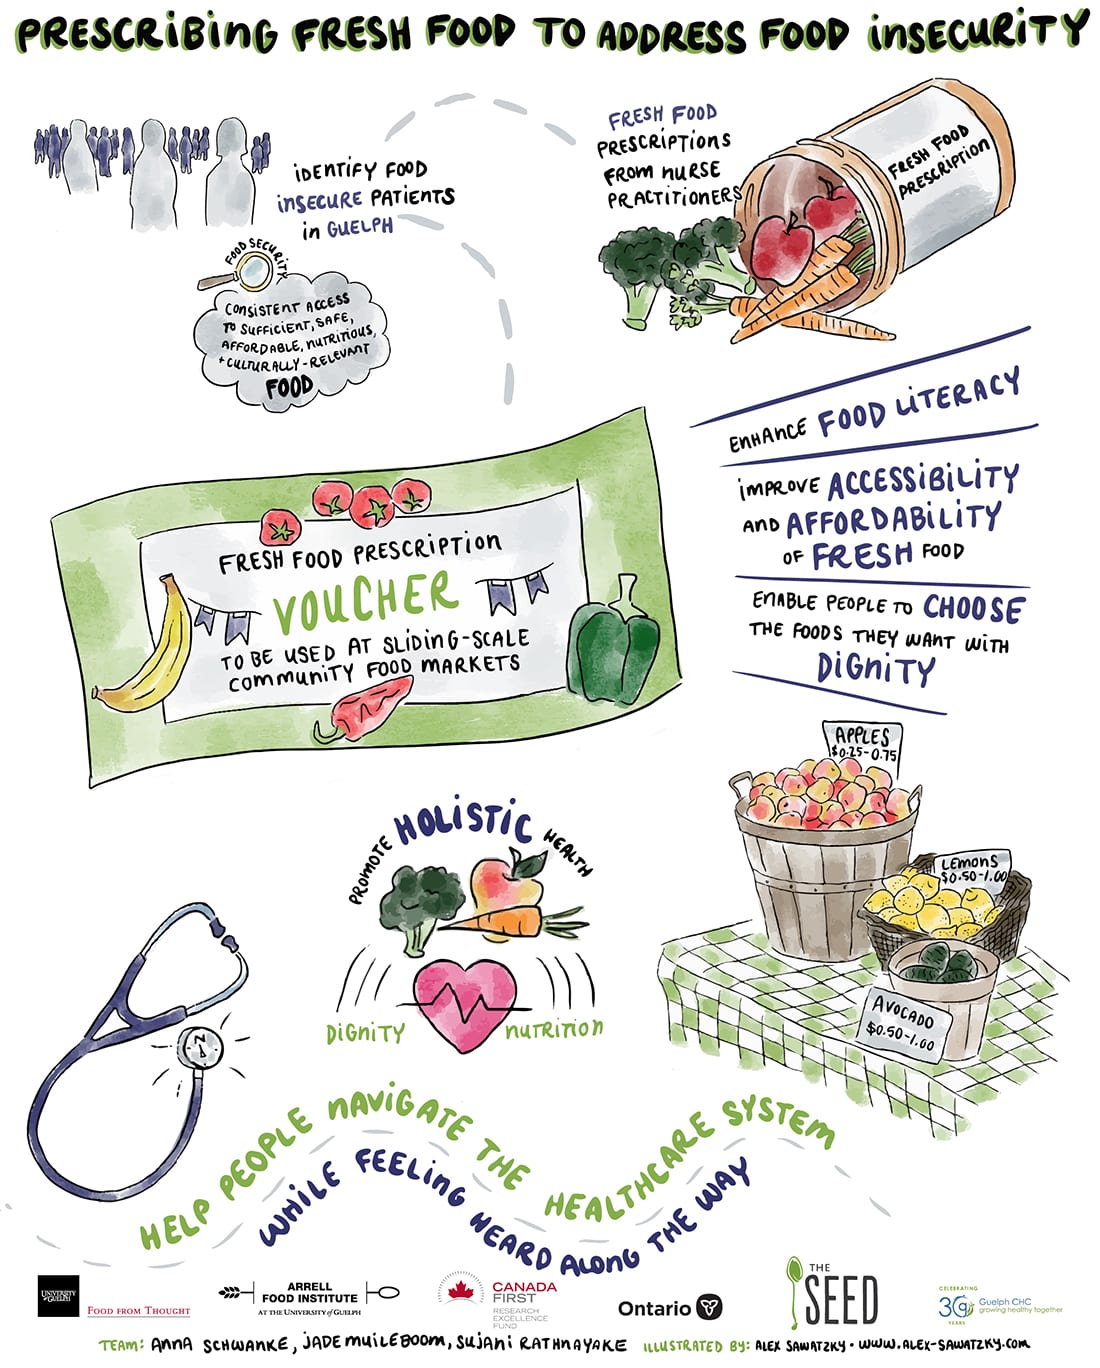 PRESCRIBING FRESH FOOD TO ADDRESS FOOD INSECURITY
IDENTIFY FOOD
INSECURE PATIENTS
in GUELPH
FOOD SECURITY
CONSISTENT ACCESS
TO SUFFICIENT, SAFE,
AFFORDABLE, NUTRITIOUS,
+ CULTURALLY-RELEVANT
FOOD
FRESH FOOD
PRESCRIPTIONS
FROM NURSE
PRACTITIONERS
FRESH FOOD
PRESCRIPTION
ENHANCE FOOD LITERACY
IMPROVE ACCESSIBILITY
AND AFFORDABILITY
OF FRESH FOOD
ENABLE PEOPLE TO CHOOSE
THE FOODS THEY WANT WITH
DIGNITY
FRESH FOOD PRESCRIPTION
VOUCHER
TO BE USED AT SLIDING-SCALE
COMMUNITY FOOD MARKETS
APPLES
$0.25-0.75
LEMONS
$0.50-1.00
AVOCADO
$0.50-1.00
PROMOTE HOLISTIC HEALTH
DIGNITY
NUTRITION
N
HELP PEOPLE NAVIGATE THE HEALTHCARE SYSTEM
WHILE FEELING HEARD ALONG THE WAY
UNIVERSITY
of GUELPH
FOOD FROM THOUGHT
ARRELL
FOOD INSTITUTE
AT THE UNIVERSITY of GUELPH
CANADA
FIRST
RESEARCH
EXCELLENCE
FUND
Ontario
THE
SEED
CELEBRATING
30
YEARS
Guelph CHC
growing healthy together
TEAM: ANNA SCHWANKE, JADE MUILEBOOM, SUJANI RATHNAYAKE
ILLUSTRATED BY: ALEX SAWATZKY • WWW.ALEX-SAWATZKY.COM